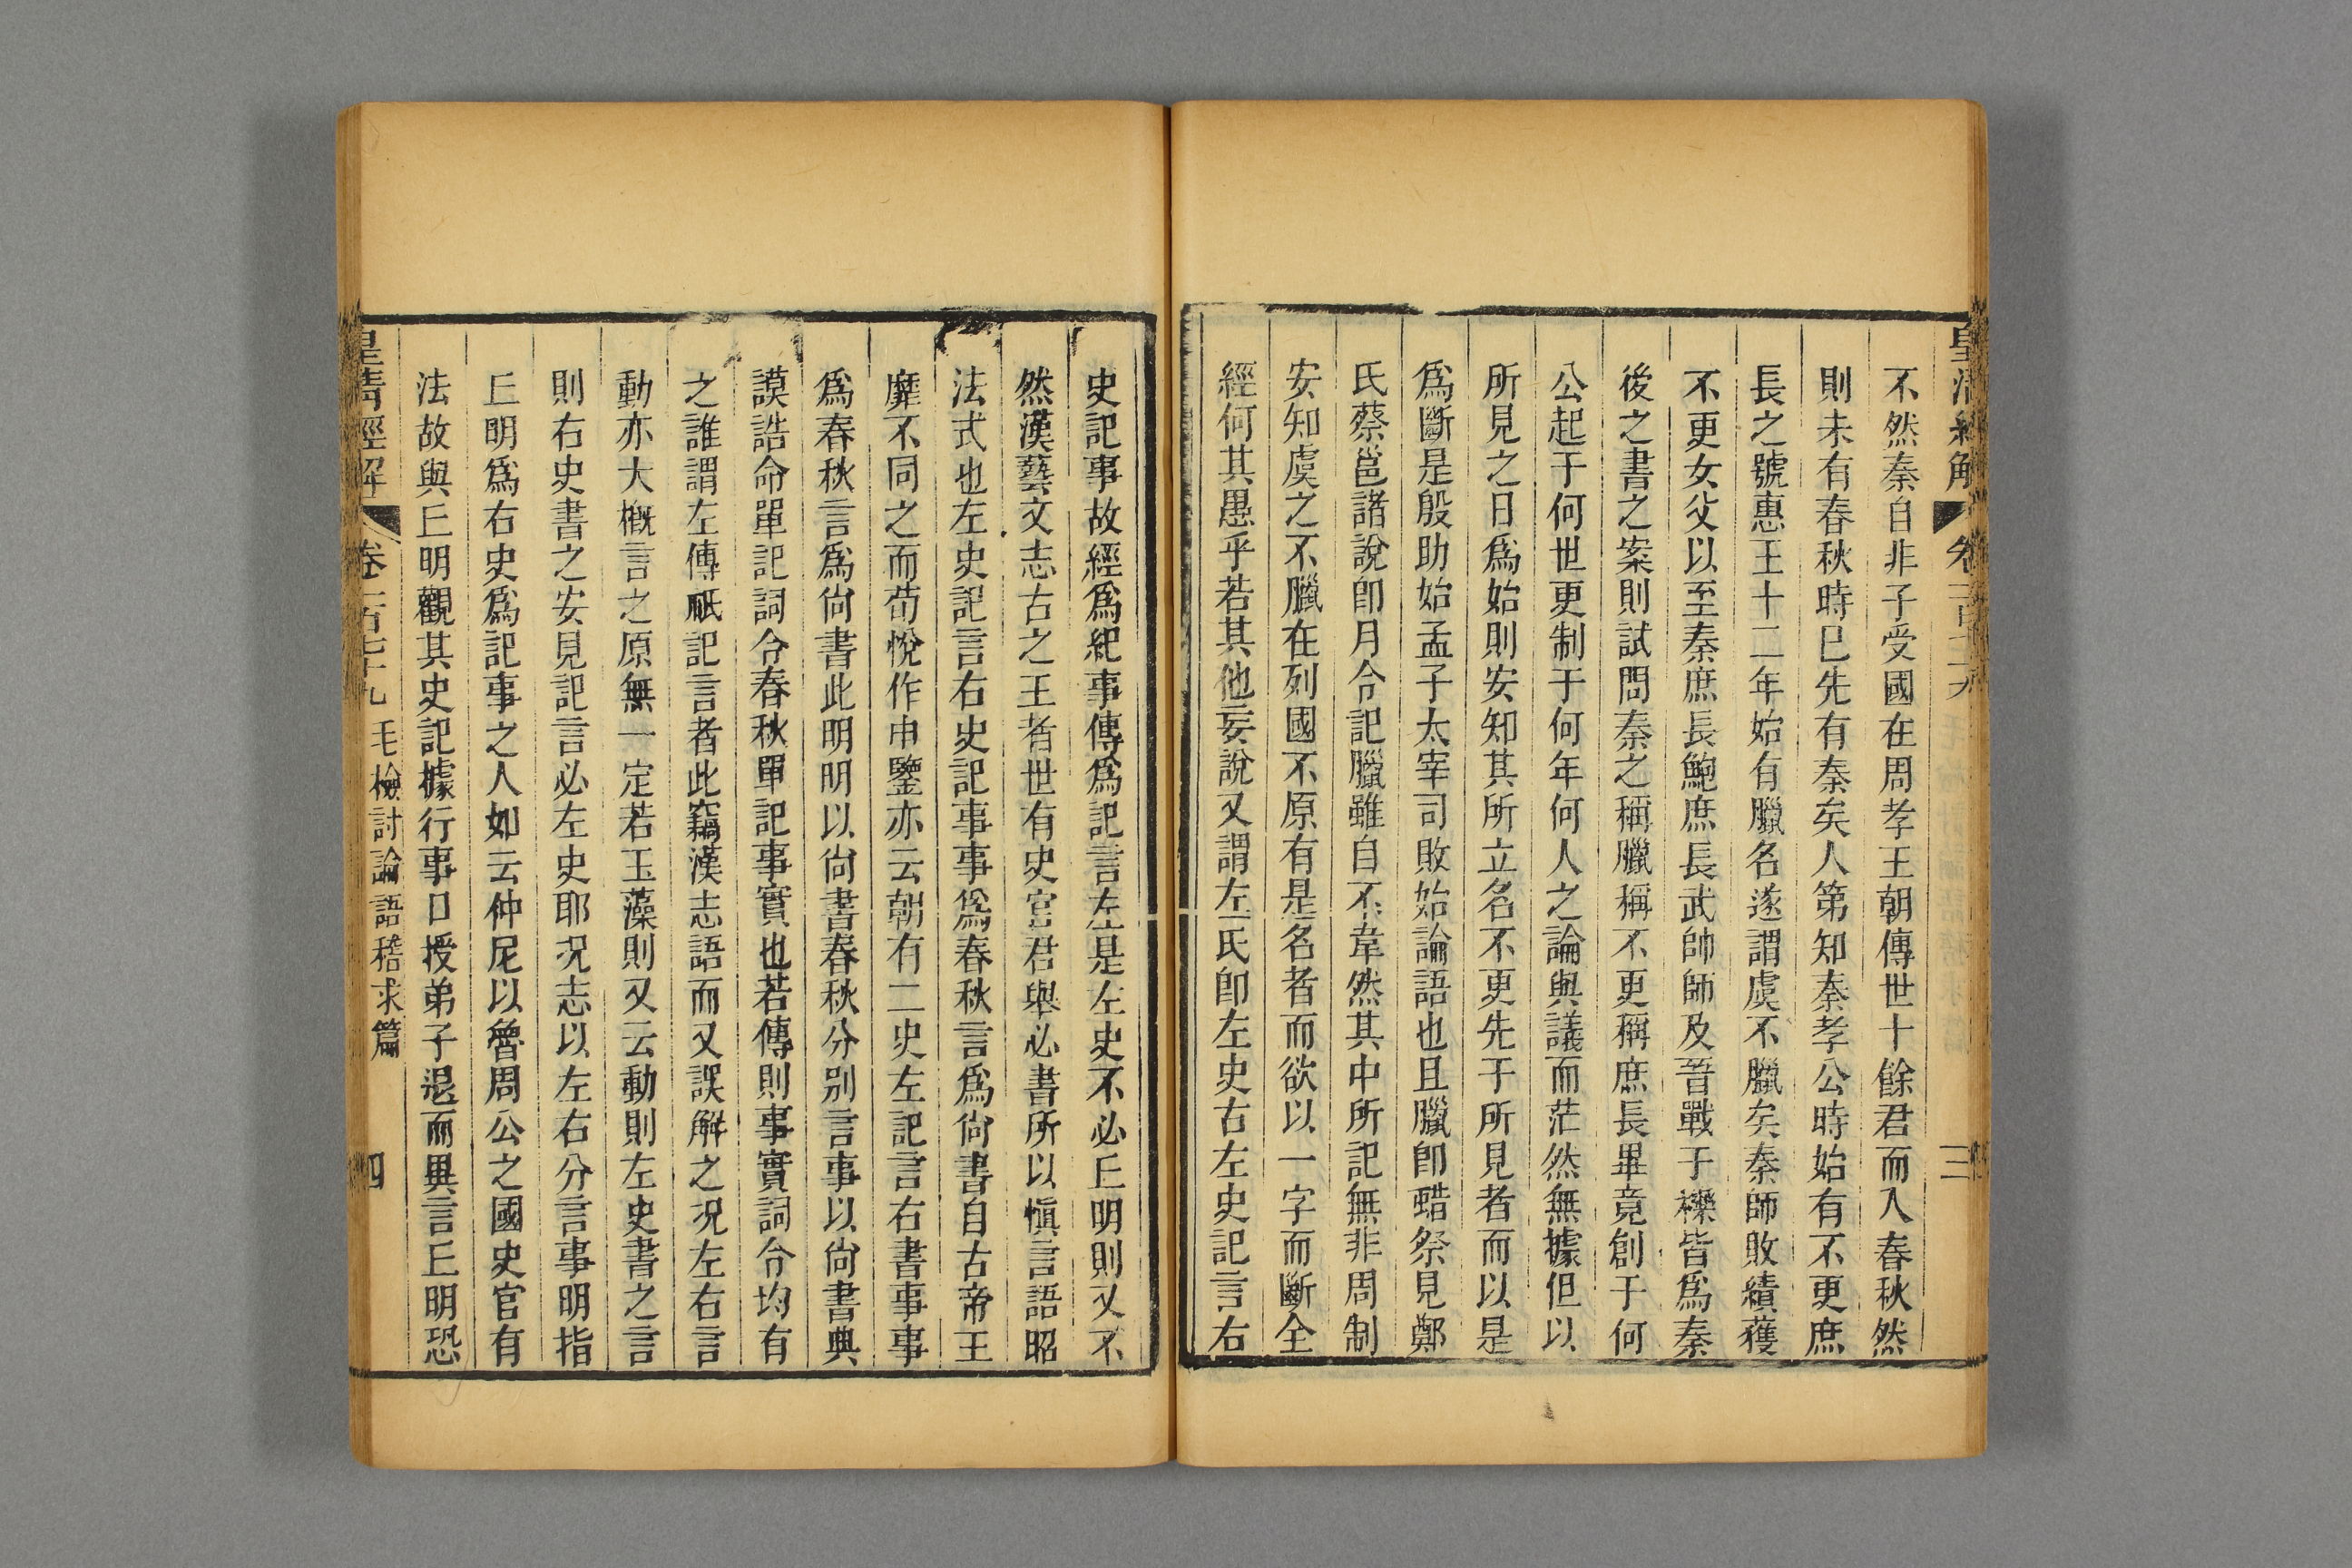 不然秦自非子受國在周孝王朝傳世十餘君而入春秋然
則未有春秋時已先有秦矣人第知秦孝公時始有不更庶
長之號惠王十二年始有臘名遂謂虞不臘矣秦師敗績獲
不更女父以至秦庶長鮑庶長武帥師及晉戰于櫟皆爲秦
後之書之案則試問秦之稱臘稱不更稱庶長畢竟創于何
公起于何世更制于何年何人之論與議而茫然無據但以
所見之日爲始則安知其所立名不更先于所見者而以是
爲斷是殷助始孟子太宰司敗始論語也且臘卽蜡祭見鄭
氏蔡邕諸說卽月令記臘雖自不韋然其中所記無非周制
安知虞之不臘在列國不原有是名者而欲以一字而斷全
經何其愚乎若其他妄說又謂左氏卽左史右左史記言右
史記事故經爲紀事傳爲記言左是左史不必丘明則又不
然漢藝文志古之王者世有史官君舉必書所以愼言語昭
法式也左史記言右史記事事爲春秋言爲尙書自古帝王
靡不同之而荀悅作申鑒亦云朝有二史左記言右書事事
爲春秋言爲尙書此明明以尙書春秋分別言事以尙書典
謨誥命單記詞令春秋單記事實也若傳則事實詞令均有
之誰謂左傳祇記言者此竊漢志語而又誤解之况左右言
動亦大槪言之原無一定若玉藻則又云動則左史書之言
則右史書之安見記言必左史耶况志以左右分言事明指
丘明爲右史爲記事之人如云仲尼以魯周公之國史官有
法故與丘明觀其史記據行事口授弟子退而異言丘明恐
皇清經解
卷一百七十九 毛檢討論語稽求篇
四